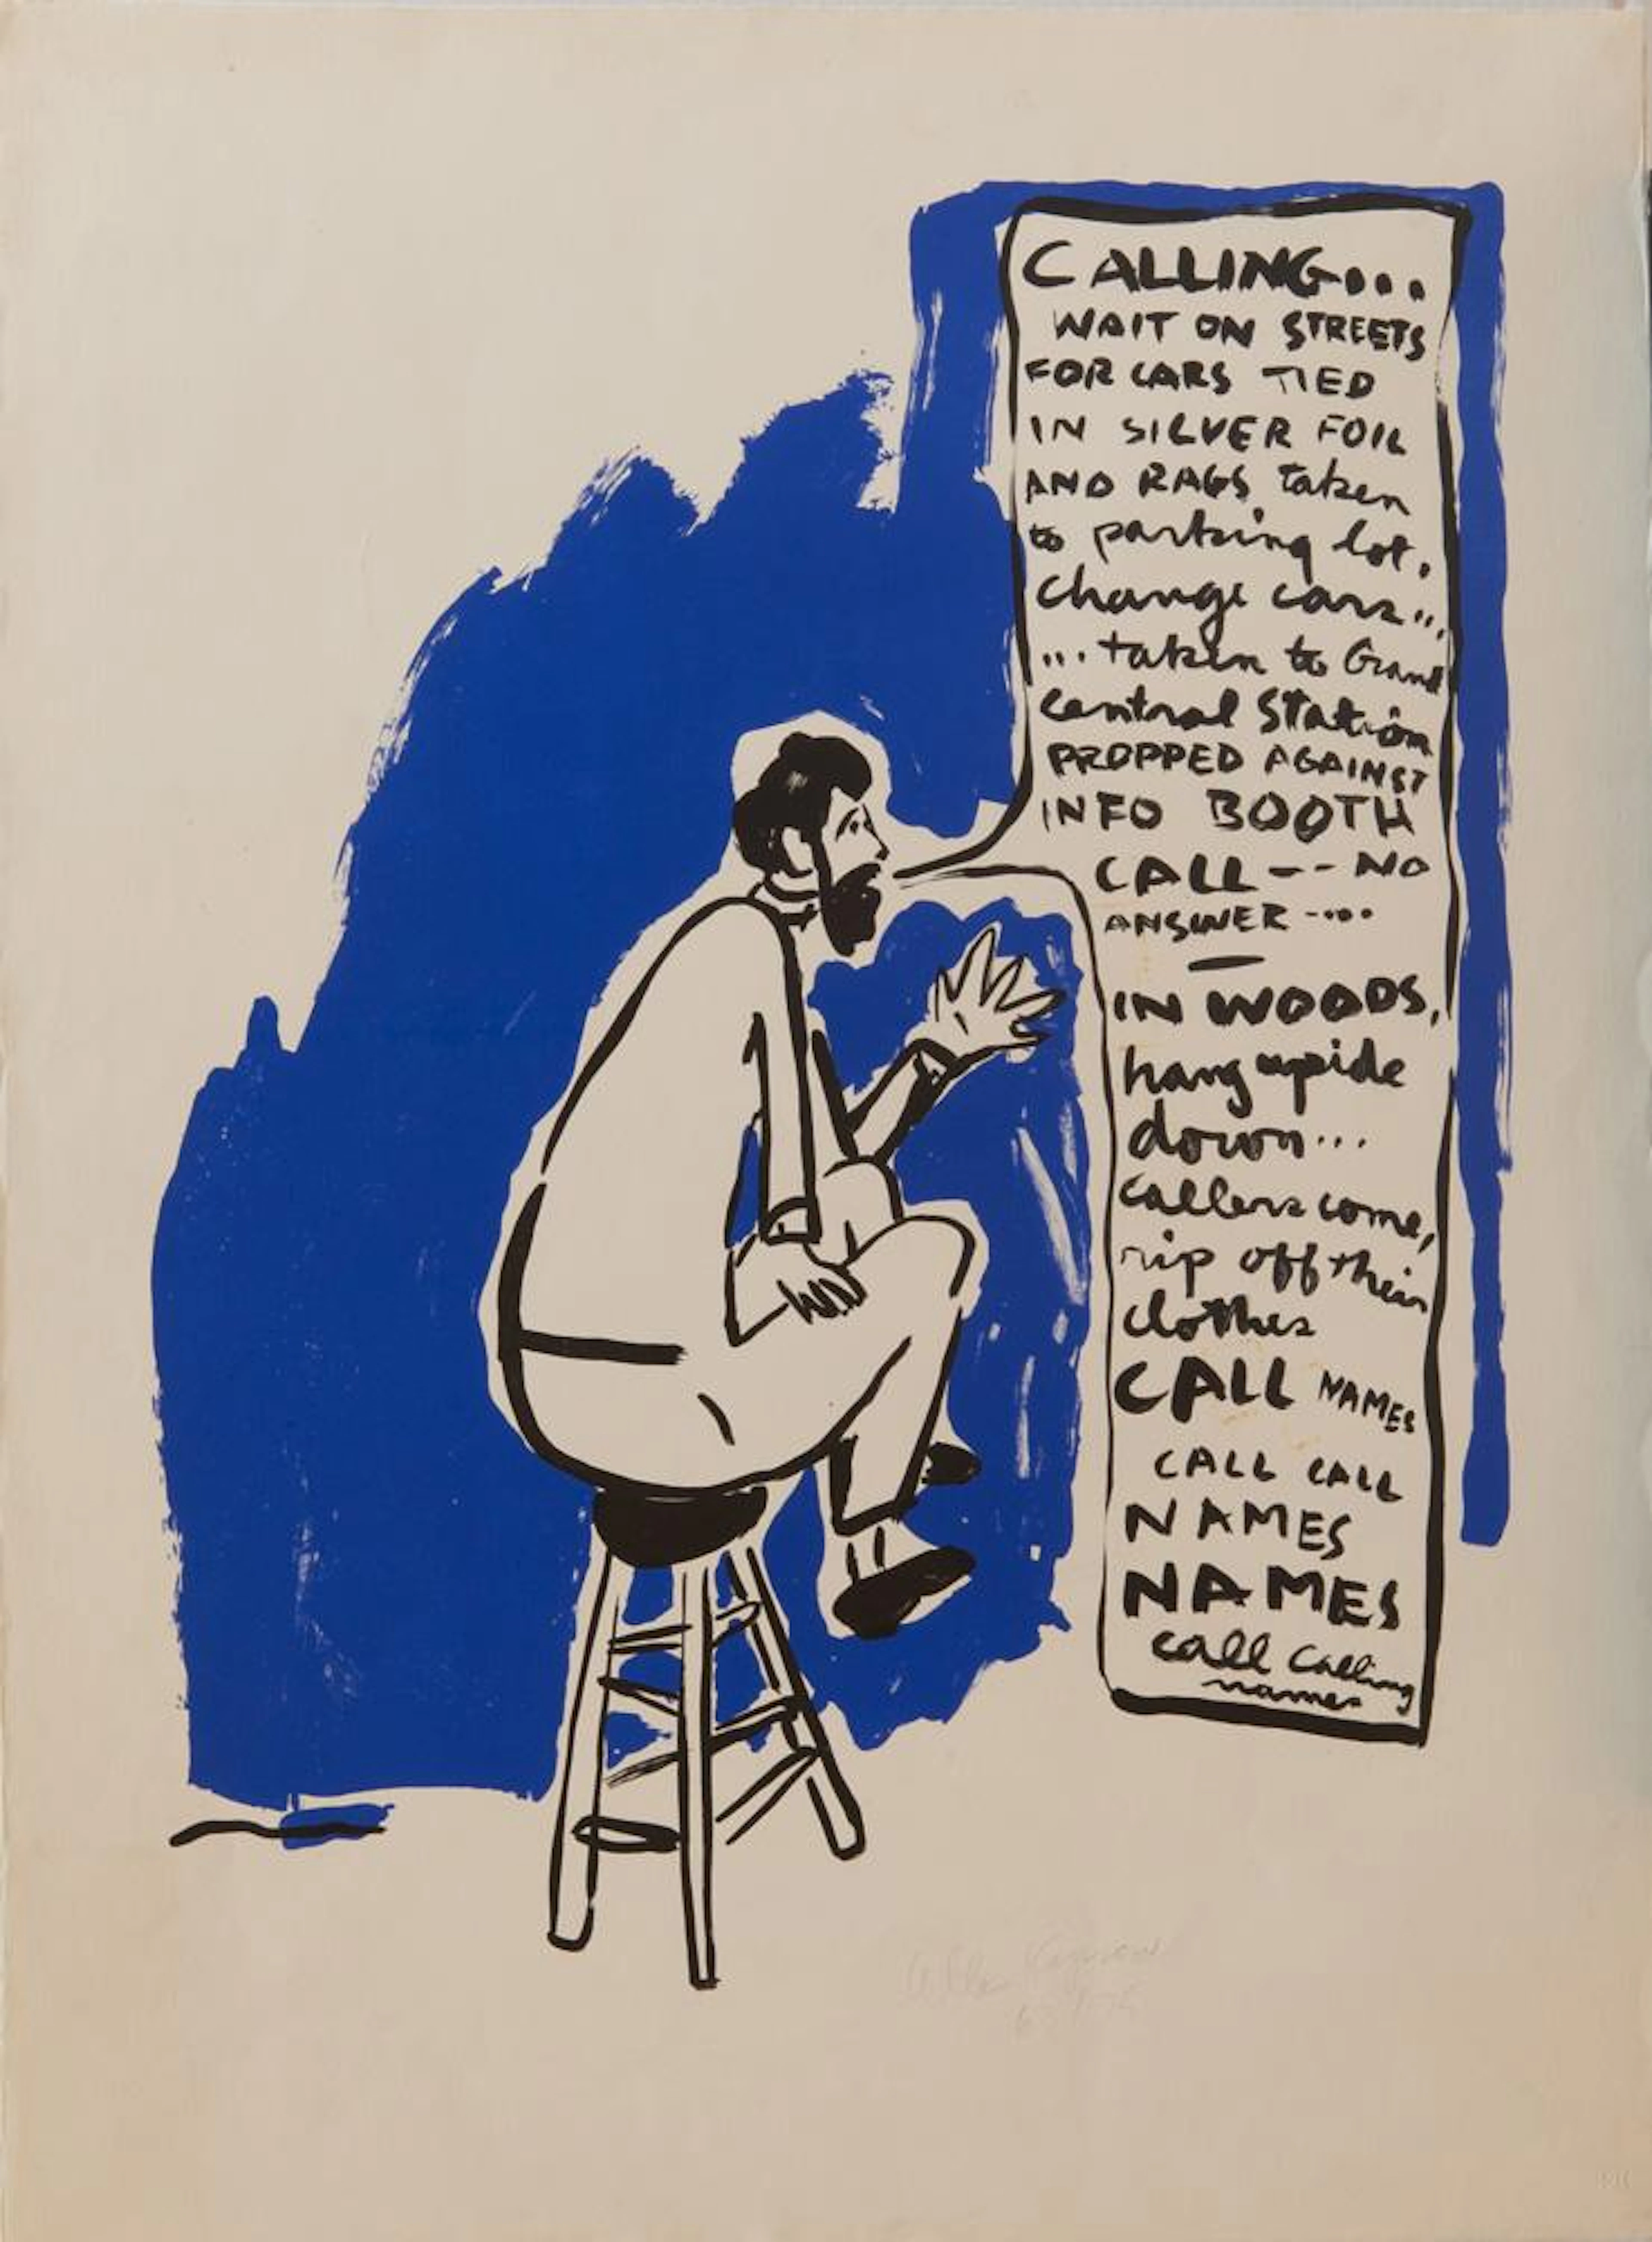 CALLING...
WAIT ON STREETS
FOR CARS TIED
IN SILVER FOIL
AND RAGS taken
to parking lot.
Change cars...
...taken to Grand
Central Station
PROPPED AGAINST
INFO BOOTH
CALL -- NO
ANSWER -....
—
IN WOODS,
hang upside
down...
callers come,
rip off their
clothes
CALL NAMES
CALL CALL
NAMES
NAMES
call calling
names